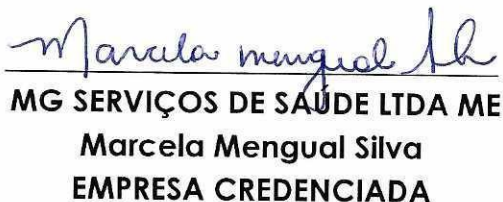 Marcela Mengual
MG SERVIÇOS DE SAÚDE LTDA ME
Marcela Mengual Silva
EMPRESA CREDENCIADA